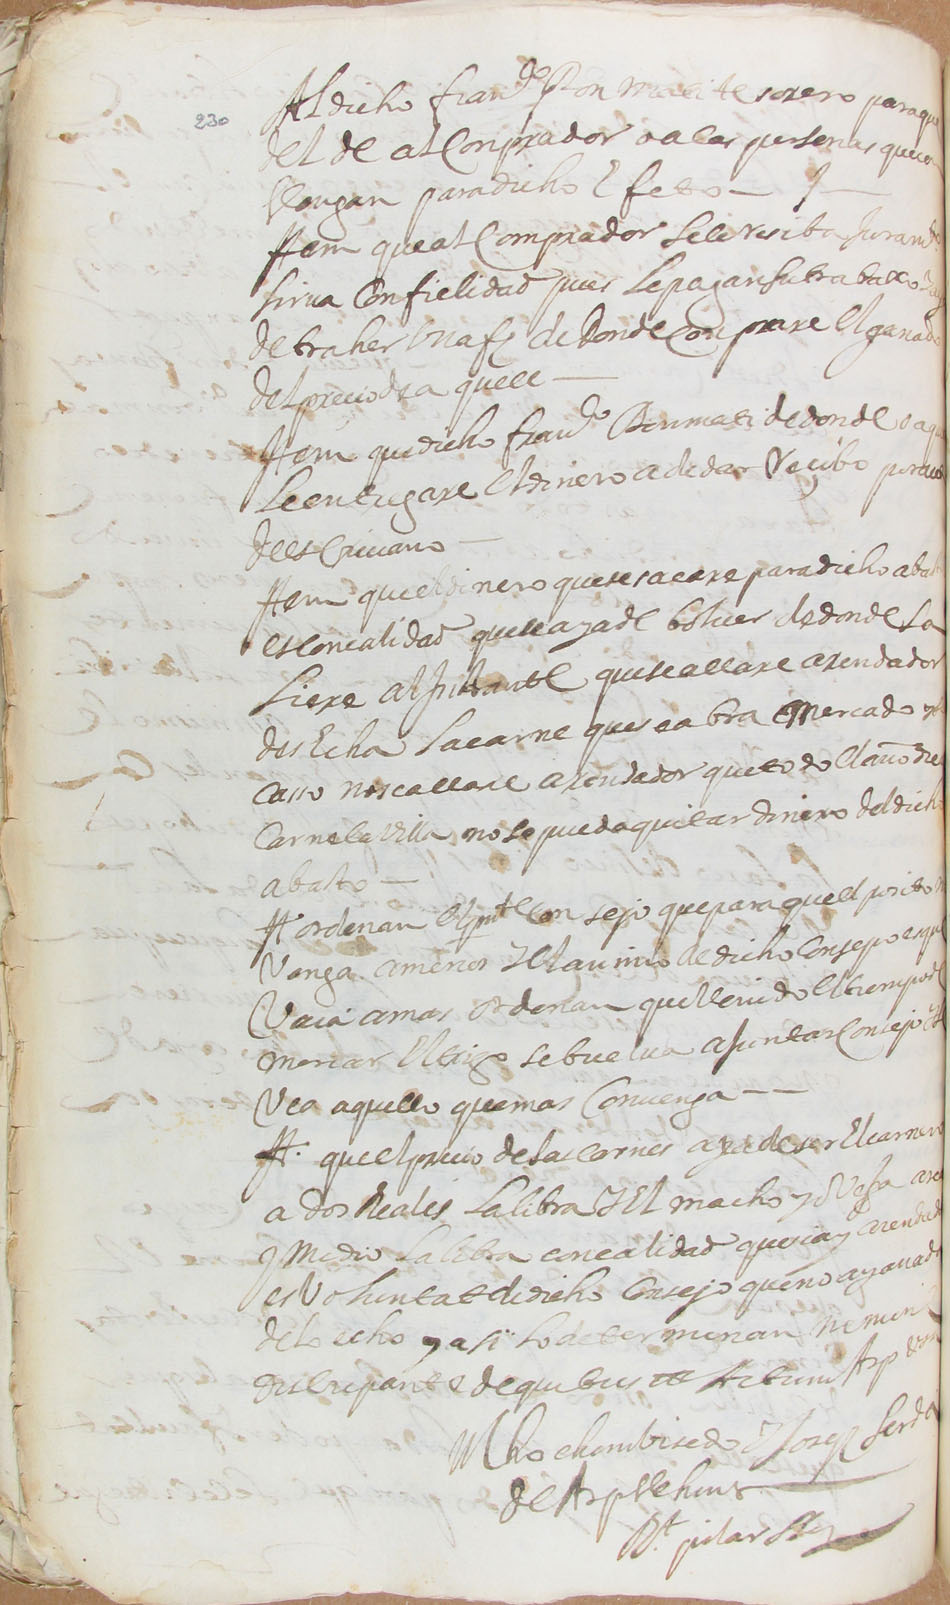 230
Al dicho fran.co Bonmati tesorero para que
del de al Comprador o a las personas que
Vengan para dicho Efeto —
Item que al Comprador se le resiba Juram.to
sirva Con fielidad pues se pagan su trabaxo
de traher de donde Comprare el ganado
del precio de a quell —
Item que dicho fran.co Bonmati de donde
se entregare el dinero a de dar Recibo por
de esCrivano —
Item que el dinero que se sacare para dicho abasto
es con calidad que se aya de bolver de donde Sa
Liere al Instante que se allare arendador
des Echa La carne que se abra Mercado y
Casso no se allare arendador que todo el año de
Carne la Villa no se pueda quitar dinero del dicho
abasto —
It ordenan el pnt Consejo que para que el posito
Venga a menos y el animo de dicho Consejo es que
Vaia a mas Ordenan que Venido el tiempo de
mercar El trigo se buelva a Juntar Concejo
Vea aquello que mas Convenga —
It. que el precio de las Carnes aya de ser El carnero
a dos Reales La libra y El macho y oVeja a
y Medio La libra con calidad que
es Voluntat de dicho Consejo que no aya
de lo echo y asi lo determinan Nemine
discripante de quibus ett Actum Asp
y Josep Serda
de Asp testimonis
pilar